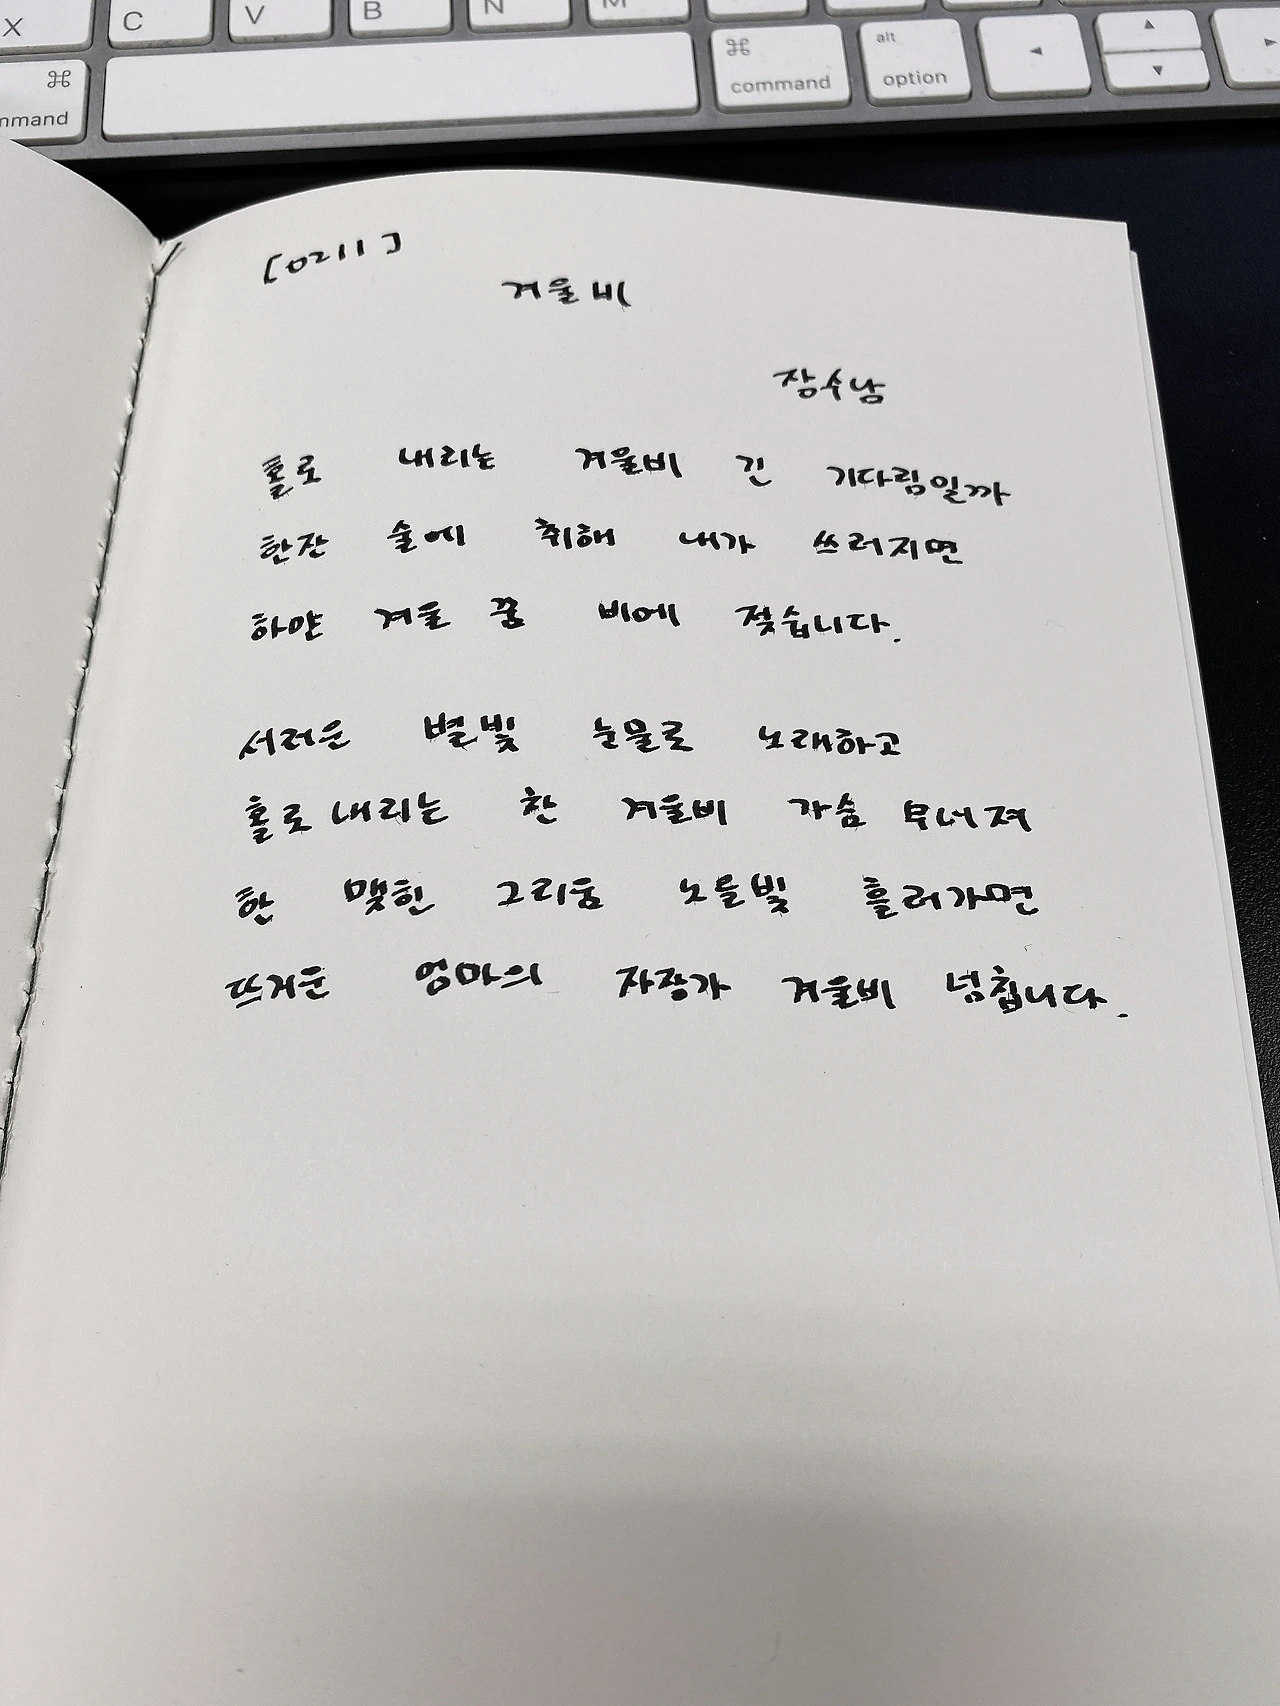 X C V B N M
⌘ ⌘ alt ◄ ▲ ►
command option ▼
mmand
[0211]
겨울비
장수남
홀로 내리는 겨울비 긴 기다림일까
한잔 술에 취해 내가 쓰러지면
하얀 겨울 꿈 비에 젖습니다.
서러운 별빛 눈물로 노래하고
홀로 내리는 찬 겨울비 가슴 무너져
한 맺힌 그리움 노을빛 흘러가면
뜨거운 엄마의 자장가 겨울비 넘칩니다.